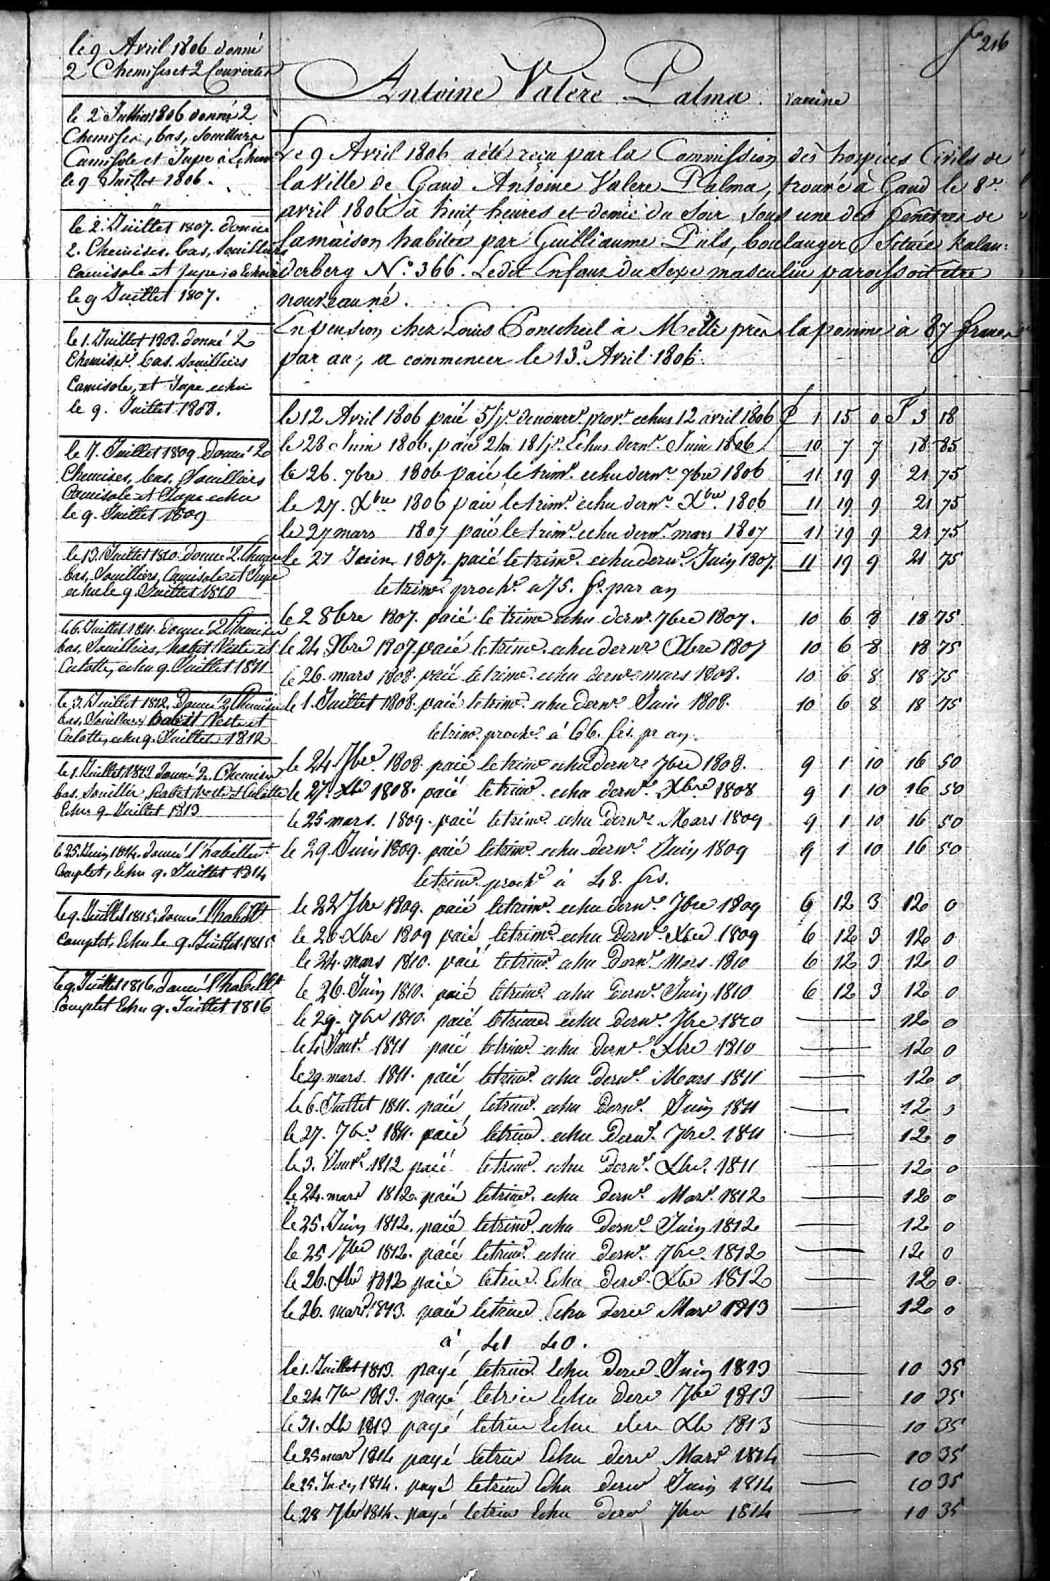 fo 216
le 9 Avril 1806 donné
2 Chemises et 2 Couvertes
le 2 Juillet 1806 donné 2
Chemises, bas, Souilliers
Camisole et Jupe à Echus
le 9 Juillet 1806.
le 2. Juillet 1807. donné
2. Chemises. bas, Souilliers
Camisole et Jupe à Echus
le 9 Juillet 1807.
le 1. Juillet 1808. donné 2
Chemises. bas. Souilliers
Camisole, et Jupe echu
le 9. Juillet 1808.
le Juillet 1809 donné 2
Chemises, bas, Souilliers
Camisole et Jupe echu
le 9. Juillet 1809
le 13. Juillet 1810. donné 2 Chemises
bas, Souilliers, Camisole et Jupe
echu le 9. Juillet 1810
le 6. Juillet 1811. donné 2 Chemises
bas, Souilliers, habit Veste et
Culotte, echu 9. Juillet 1811
le 3. Juillet 1812. donné 2 Chemises
bas, Souilliers habit Veste et
Culotte, echu 9. Juillet 1812
le 1. Juillet 1813 donné 2. Chemises
bas. Souilliers habit Veste et Culotte
Echu 9 Juillet 1813
le 25. Juin 1814. donné l'habillemt
Complet, Echu 9. Juillet 1814
le 9. Juillet 1815. donné l'habillt
Complet. Echu le 9. Juillet 1815
le 9. Juillet 1816. donné l'habillt
Complet Echu 9. Juillet 1816
Antoine Valère Palma. Vaccine
Le 9 Avril 1806 a été reçu par la Commission des hospices Civils de
la Ville de Gand Antoine Valere Palma, trouvé à Gand le 8e
avril 1806 à huit heures et demie du Soir, Sous une des fenêtres de
la maison habitée par Guilliaume Pils, boulanger Située Kalan:
derberg No. 366. Ledit Enfant du Sexe masculin paroissoit etre
nouveau né.
En pension chez Louis à Melle près la pomme à 87 francs
par an, a commencer le 13 Avril 1806.
le 12 Avril 1806 paié 5/j. de nourr. prov. echus 12 avril 1806 £ 1 15 0 F 3 18
le 28 Juin 1806. paié 2/m 18/j. Echus dernr. Juin 1806. 10 7 7 18 85
le 26. 7bre 1806 paié le trimr. echu dernr. 7bre 1806 11 19 9 21 75
le 27. Xbre 1806 paié le trimr. echu dernr. Xbre. 1806 11 19 9 21 75
le 27 mars 1807 paié le trimr. echu dernr. mars 1807 11 19 9 21 75
le 27 Juin 1807. paié le trimr. echu dernr. Juin 1807. 11 19 9 21 75
le trimr. prochr. a 75. fs. par an
le 2 8bre 1807. paié le trimr echu dernr. 7bre 1807. 10 6 8 18 75
le 24 Xbre 1807. paié le trimr. echu dernr Xbre 1807 10 6 8 18 75
le 26. mars 1808. paié le trimr. echu dernr mars 1808. 10 6 8 18 75
le 1. Juillet 1808. paié le trimr. echu dernr. Juin 1808. 10 6 8 18 75
le trimr. prochr. à 66. frs. pr an.
le 24 7bre 1808. paié le trimr echu dernr 7bre 1808. 9 1 10 16 50
le 27. Xbre 1808. paié le trimr. echu dernr. Xbre 1808 9 1 10 16 50
le 25 mars. 1809. paié le trimr. echu dernr Mars 1809 9 1 10 16 50
le 29. Juin 1809. paié le trimr. echu dernr. Juin 1809 9 1 10 16 50
le trimr. prochr à 48. frs.
le 22 7bre 1809. paié le trimr. echu dernr. 7bre 1809 6 12 3 12 0
le 26. Xbre 1809 paié le trimr. echu dernr. Xbre 1809 6 12 3 12 0
le 24. mars 1810. paié le trimr. echu dernr. Mars. 1810 6 12 3 12 0
le 26. Juin 1810. paié le trimr. echu dernr. Juin 1810 6 12 3 12 0
le 29. 7bre 1810. paié le trimr echu dernr. 7bre 1810 — 12 0
le 4 Janvr. 1811 paié le trimr. echu dernr. Xbre 1810 — 12 0
le 29 mars. 1811. paié le trimr. echu dernr. Mars 1811 — 12 0
le 6. Juillet 1811. paié le trimr. echu dernr. Juin 1811 — 12 0
le 27. 7bre 1811. paié le trimr. echu dernr. 7bre. 1811 — 12 0
le 3. Janvr. 1812 paié le trimr. echu dernr. Xbre. 1811 — 12 0
le 24. mars 1812. paié le trimr. echu dernr. Mars. 1812 — 12 0
le 25. Juin 1812. paié le trimr. echu dernr. Juin 1812 — 12 0
le 25 7bre 1812. paié le trimr. echu dernr. 7bre. 1812 — 12 0
le 26. Xbre 1812 paié le trimr. Echu dernr. Xbre 1812 — 12 0
le 26. mars 1813. paié le trimr Echu dernr Mars 1813 — 12 0
à 41 40.
le 1. Juillet 1813. payé le trimr Echu dernr Juin 1813 — 10 35
le 24 7bre 1813. payé le trimr Echu dernr 7bre 1813 — 10 35
le 31. Xbre 1813 payé le trimr Echu dernr Xbre 1813 — 10 35
le 25 mars 1814 payé le trimr Echu dernr Mars 1814 — 10 35
le 25. Juin 1814. payé le trimr Echu dernr Juin 1814 — 10 35
le 28 7bre 1814. payé le trimr Echu dernr 7bre 1814 — 10 35